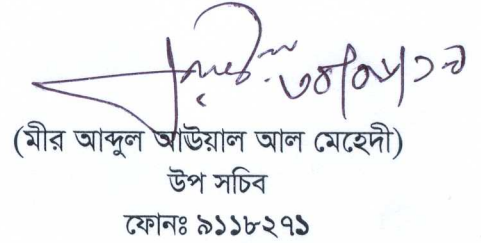 (মীর আব্দুল আউয়াল আল মেহেদী)
উপ সচিব
ফোনঃ ৯১১৮২৭১